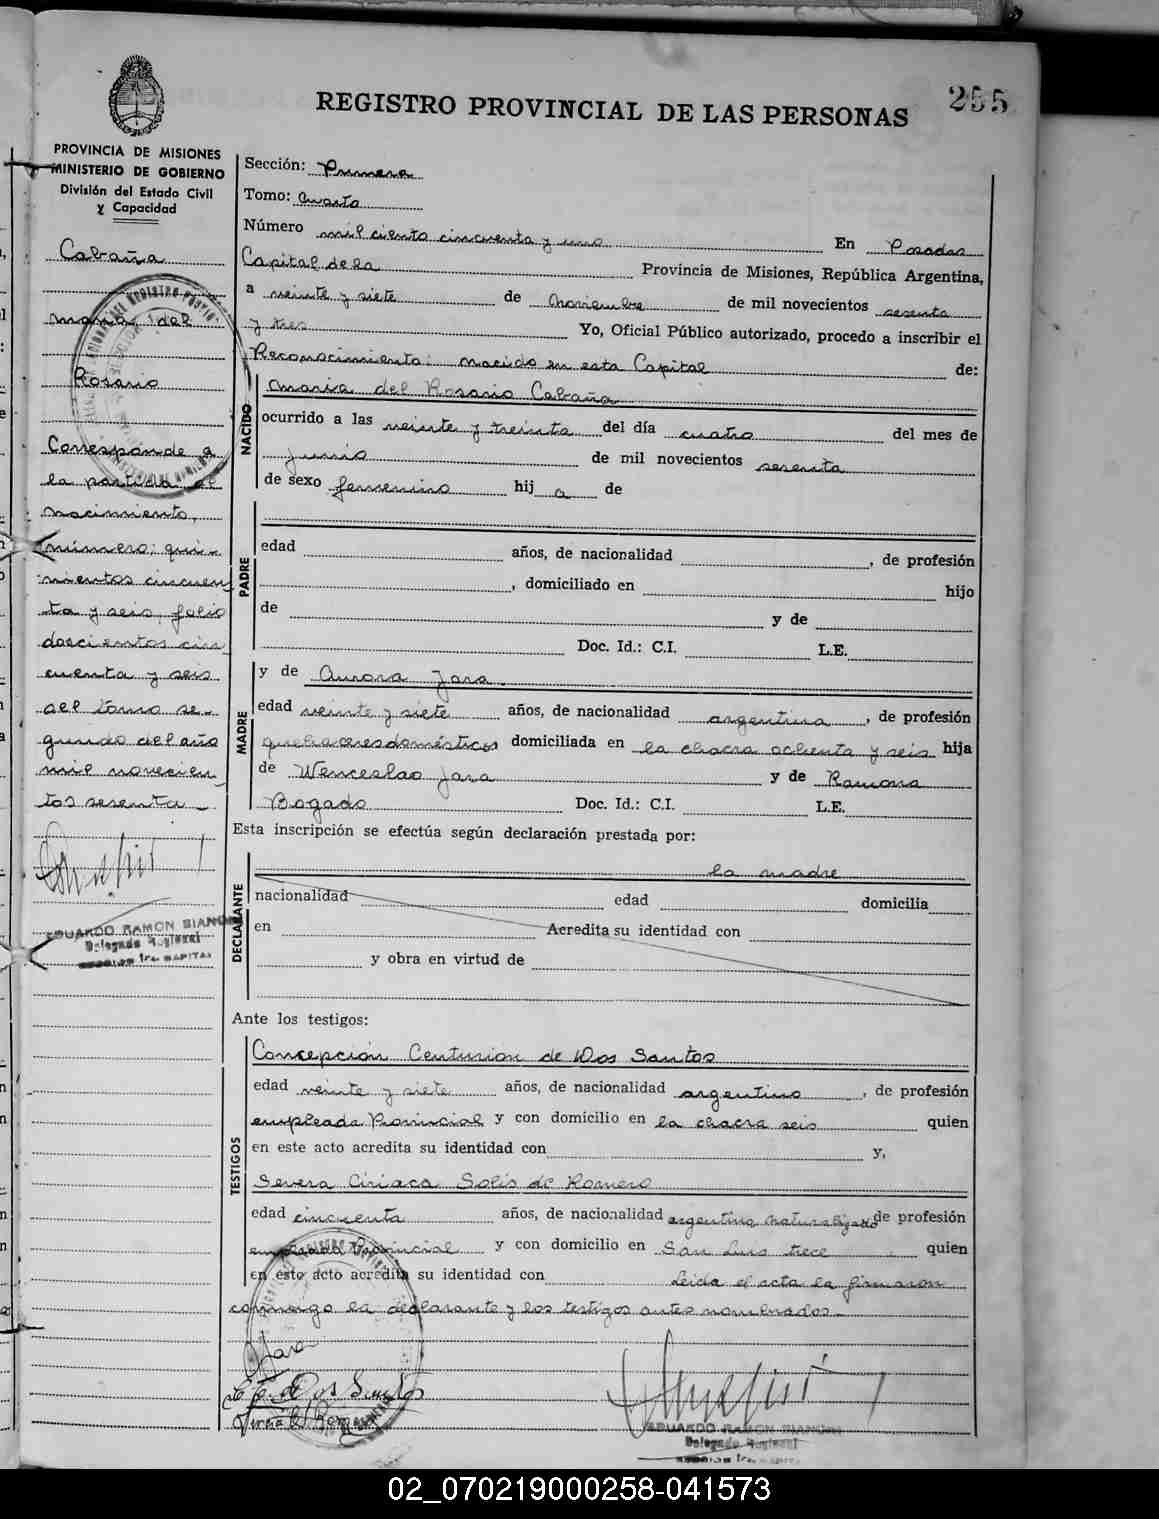 REGISTRO PROVINCIAL DE LAS PERSONAS
255
PROVINCIA DE MISIONES
MINISTERIO DE GOBIERNO
División del Estado Civil
y Capacidad
Cabaña
Maria del
Rosario
Corresponde a
la partida de
nacimiento,
número: qui-
nientos cincuen
ta y seis, folio
doscientos cin
cuenta y seis
del tomo se-
gundo del año
mil novecien
tos sesenta
EDUARDO RAMON BIANCHI
Delegado Regional
Sección: Primera
Tomo: Cuarto
Número mil ciento cincuenta y uno En Posadas
Capital de la Provincia de Misiones, República Argentina,
a veinte y siete de Noviembre de mil novecientos sesenta
y tres Yo, Oficial Público autorizado, procedo a inscribir el
Reconocimiento: nacido en esta Capital de:
NACIDO
Maria del Rosario Cabaña
ocurrido a las veinte y treinta del día cuatro del mes de
Junio de mil novecientos sesenta
de sexo femenino hij a de
PADRE
edad años, de nacionalidad , de profesión
, domiciliado en hijo
de y de
Doc. Id.: C.I. L.E.
MADRE
y de Aurora Jara
edad veinte y siete años, de nacionalidad argentina, de profesión
quehaceres domésticos domiciliada en la chacra ochenta y seis hija
de Wenceslao Jara y de Ramona
Bogado Doc. Id.: C.I. L.E.
Esta inscripción se efectúa según declaración prestada por:
DECLARANTE
la madre
nacionalidad edad domicilia
en Acredita su identidad con
y obra en virtud de
Ante los testigos:
TESTIGOS
Concepción Centurion de Dos Santos
edad veinte y siete años, de nacionalidad argentino, de profesión
empleada Provincial y con domicilio en la chacra seis quien
en este acto acredita su identidad con y,
Severa Ciriaca Solis de Romero
edad cincuenta años, de nacionalidad argentina naturalizado de profesión
empleada Provincial y con domicilio en San Luis trece quien
en esto acto acredita su identidad con Leida el acta la firmaron
conmigo la declarante y los testigos antes nombrados.
AJara
EDUARDO RAMON BIANCHI
Delegado Regional
02_070219000258-041573